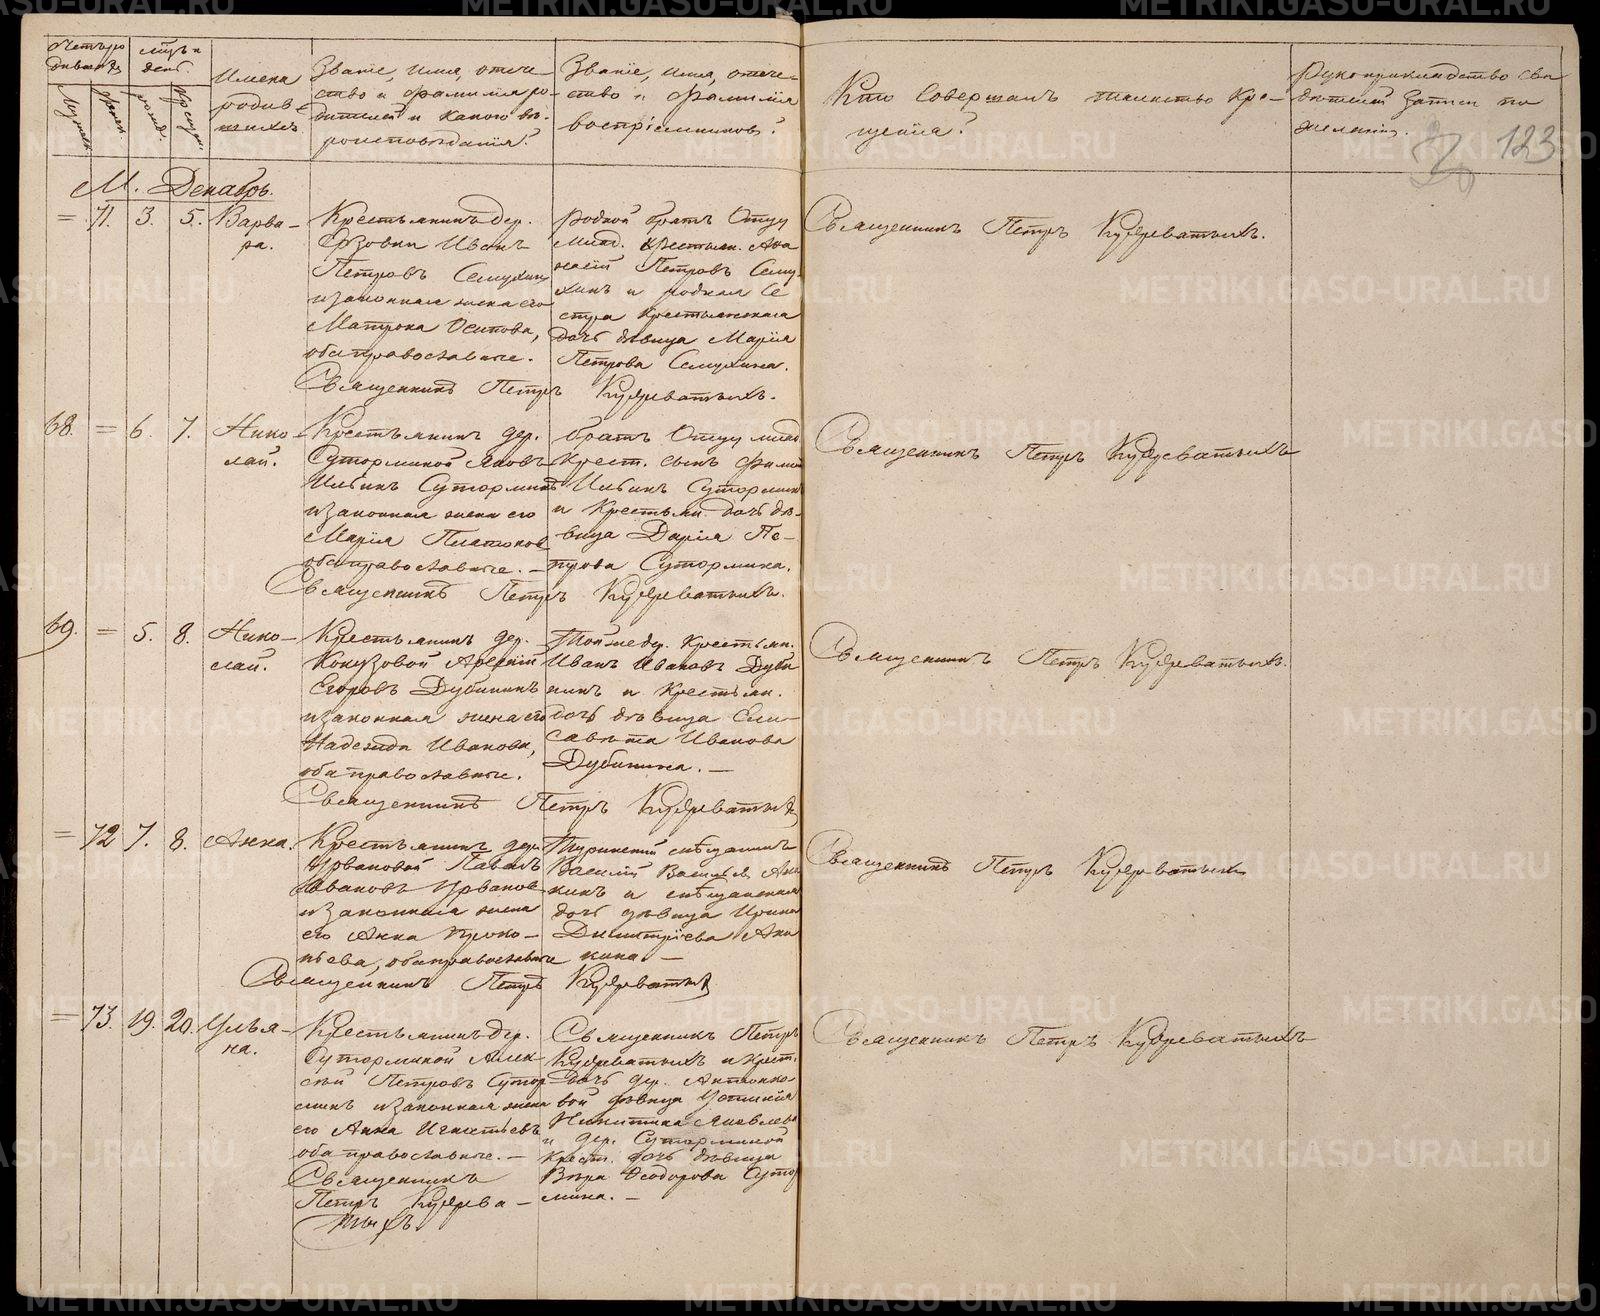 Счетъ ро
дившихъ
мѣсъ и
день.
Мужеск.
Женск.
рожд.
Крещен.
Имена
родив-
шихся
Званіе, имя, отче-
ство и фамилія ро-
дителей и какого вѣ-
роисповѣданія?
Званіе, имя, отече-
ство и фамилія
воспріемниковъ?
Кто совершалъ таинство Кре-
щенія?
Рукоприкладство сви
дѣтелей записи по
желанію.
123
М. Декабрь.
= 71. 3. 5. Варва-
ра.
Крестьянинъ дер.
Иванъ
Петровъ Семухинъ
и законная жена его
Матрона Осипова,
оба православные.
Священникъ Петръ Кудреватыхъ.
родной братъ Отцу
млад. крестьян. Афа
насій Петровъ Сему
хинъ и родная се
стра крестьянская
дочь дѣвица Марія
Петрова Семухина.
Священникъ Петръ Кудреватыхъ.
68. = 6. 7. Нико-
лай.
Крестьянинъ дер.
Суторминой Яковъ
Ильинъ Суторминъ
и законная жена его
Марія Платонов
оба православные. —
Священникъ Петръ Кудреватыхъ.
братъ Отцу млад
крест. сынъ
Ильинъ Суторминъ
и крестьян. дочь дѣ-
вица Дарія Пе-
трова Сутормина.
Священникъ Петръ Кудреватыхъ
69. = 5. 8. Нико-
лай.
Крестьянинъ дер.
Кокузовой
Егоровъ Дубининъ
и законная жена его
Надежда Иванова,
оба православные.
Священникъ Петръ Кудреватых
Той же дер. крестьян.
Иванъ Ивановъ Дуби
нинъ и крестьян.
дочь дѣвица Ели-
савѣта Иванова
Дубинина. —
Священникъ Петръ Кудреватыхъ.
= 72 7. 8. Анна.
Крестьянинъ дер.
Урвановой Павелъ
Ивановъ Урванов
и законная жена
его Анна Проко-
пьева, оба православные
Священникъ Петръ Кудреватых
Туринскій мѣщанинъ
Василій Васильев Ана
нинъ и мѣщанская
дочь дѣвица Ирина
Димитріева Ана
нина. —
Священникъ Петръ Кудреватыхъ
= 73. 19. 20. Улья-
на.
Крестьянинъ дер.
Суторминой Алек
сѣй Петровъ Сутор
минъ и законная жена
его Анна Игнатьевъ
оба православные. —
Священникъ
Петръ Кудрева-
тыхъ.
Священникъ Петръ
Кудреватыхъ и крест.
дочь дер. Антонко
вой дѣвица
Никитина Яковлева
и дер. Суторминой
крест. дочь дѣвица
Вѣра Ѳеодорова Сутор
мина. —
Священникъ Петръ Кудреватыхъ
METRIKI.GASO-URAL.RU